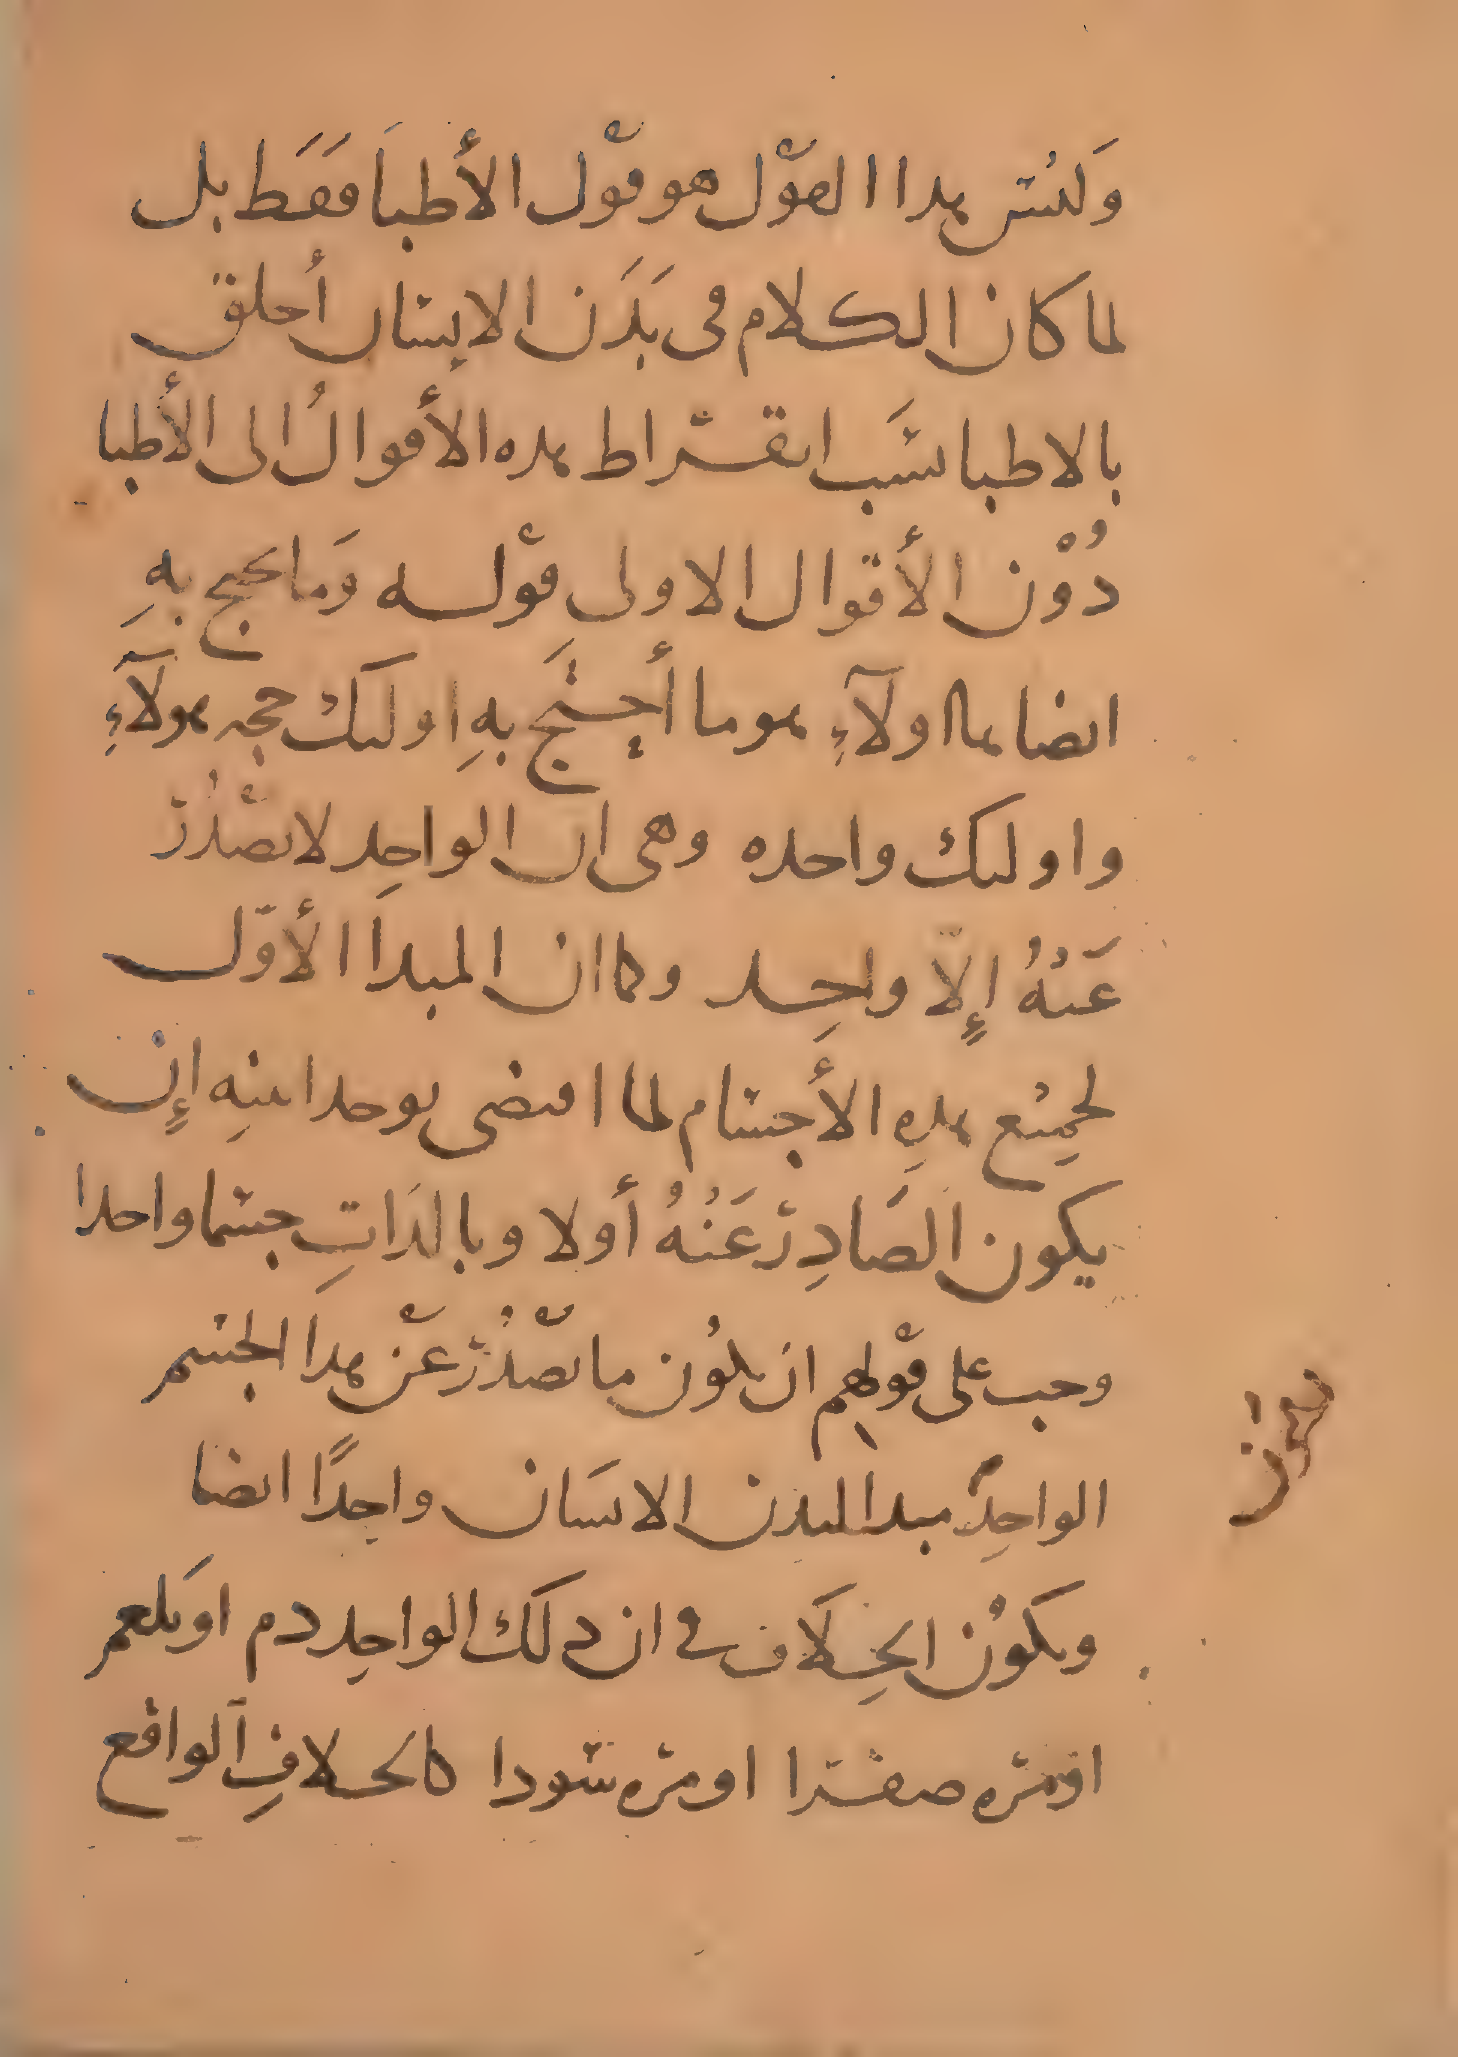 وَليْسَ هذا القوْل هو قوْل الأطباَ فقَط بل
لما كان الكلام في بَدَن الإنسان أخلق
بالاطبا نسَب ابقراط هذه الأقوالُ الى الأطبا
دُوْن الأقوال الاولى قوْله وَما يحتج بهِ
ايضا هاولآءِ هو ما أحتَج بهِ اوليك حجه هولآءِ
واوليك واحده وهي ان الواحِد لا يصْدُر
عَنهُ إلّا واحِد وكان المبدا الأوّل
لجميْع هذهِ الأجسام لما اقتضى بوحدانيتهِ إن
يكون الصَادِر عَنْهُ أولا وبالذاتِ جسما واحدا
وجب على قوْلهم ان يكوُن ما يصْدُر عنْ هذا الجسم
الواحِد مبدا لبدن الانسَان واحِدًا ايضا
ويكوُن الخِلَاف في ان ذلك الواحِد دم او بَلغم
او مره صفرا او مره سودا كالخلافِ الواقع